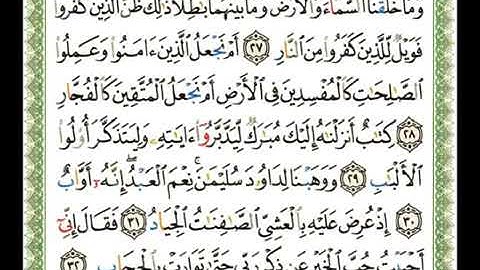 وَمَا خَلَقْنَا السَّمَاءَ وَالْأَرْضَ وَمَا بَيْنَهُمَا بَاطِلًا ذَٰلِكَ ظَنُّ الَّذِينَ كَفَرُوا
فَوَيْلٌ لِّلَّذِينَ كَفَرُوا مِنَ النَّارِ ٢٧ أَمْ نَجْعَلُ الَّذِينَ ءَامَنُوا وَعَمِلُوا
الصَّالِحَاتِ كَالْمُفْسِدِينَ فِي الْأَرْضِ أَمْ نَجْعَلُ الْمُتَّقِينَ كَالْفُجَّارِ
٢٨ كِتَابٌ أَنزَلْنَاهُ إِلَيْكَ مُبَارَكٌ لِّيَدَّبَّرُوا ءَايَاتِهِ وَلِيَتَذَكَّرَ أُولُوا
الْأَلْبَابِ ٢٩ وَوَهَبْنَا لِدَاوُودَ سُلَيْمَانَ نِعْمَ الْعَبْدُ إِنَّهُ أَوَّابٌ
٣٠ إِذْ عُرِضَ عَلَيْهِ بِالْعَشِيِّ الصَّافِنَاتُ الْجِيَادُ ٣١ فَقَالَ إِنِّي
أَحْبَبْتُ حُبَّ الْخَيْرِ عَن ذِكْرِ رَبِّي حَتَّىٰ تَوَارَتْ بِالْحِجَابِ ٣٢